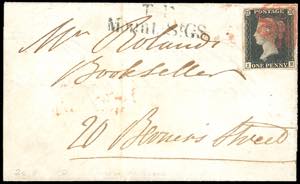 T.P
Mount St:G.S
POSTAGE
ONE PENNY
Mr Rolandi
Bookseller
20 Berners Street